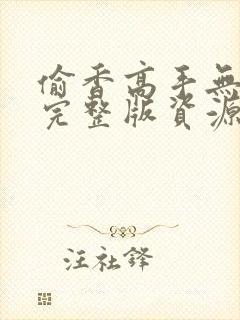 偷香高手無
完整版資源
汪社鋒